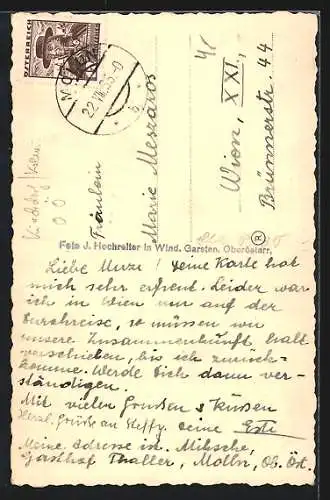 ÖSTERREICH
22.VII.35-0
b
Fräulein
Marie Meszaros
Wien, XXI,
Brünnerstr. 44
Foto J. Hochreiter in Wind. Garsten, Oberösterr.
Liebe Murzi! Deine Karte hat
mich sehr erfreut. Leider war
ich in Wien nur auf der
Durchreise, so müssen wir
unsere Zusammenkünft halt
verschieben, bis ich zurück-
komme. Werde Dich dann ver-
ständigen.
Mit vielen Grüssen & Küssen
Herzl. Grüsse an Steffy. Deine Esti
Meine Adresse ist. Mitsche,
Gasthof Thaller, Molln, Ob. Öst.